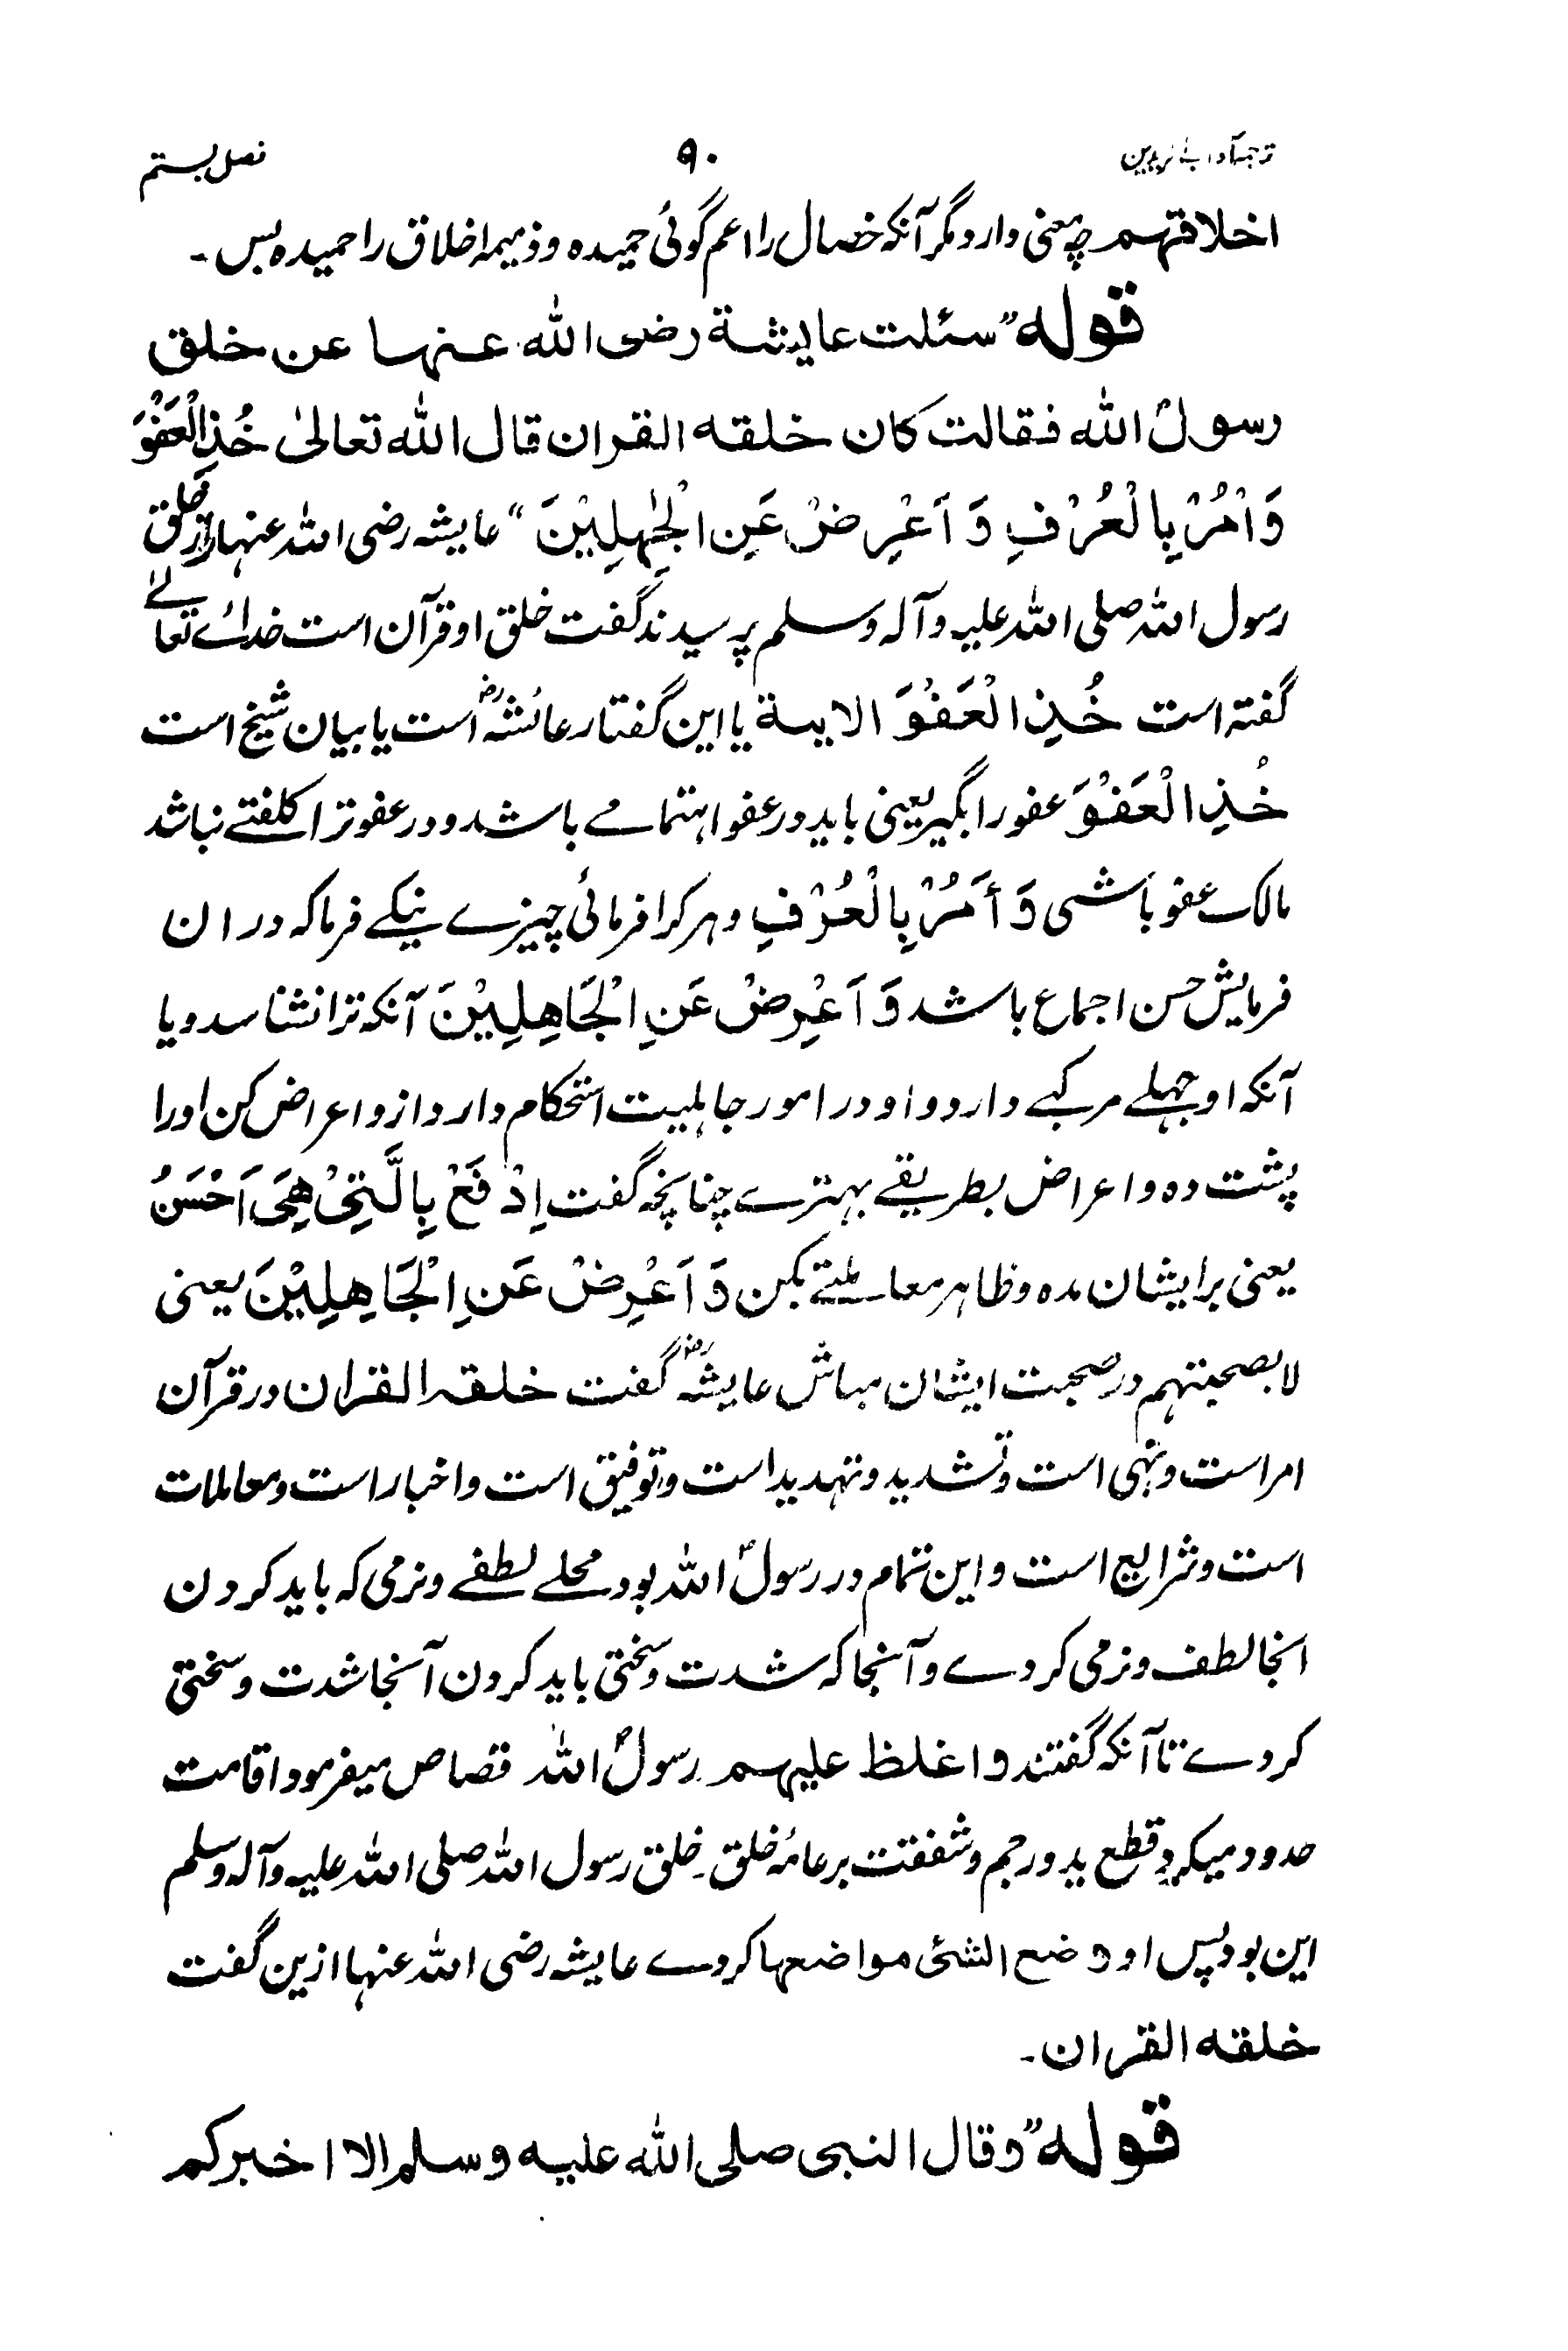 ترجمہ آداب المریدین ۹۰ فصل بستم
اخلاقہم چہ معنی دارد مگر آنکہ خصال را اعم گوئی حمیدہ و ذمیمہ اخلاق را حمیدہ بس ۔
قولہ ”سئلت عایشة رضی اللہ عنہا عن خلق
رسولؐ اللہ فقالت کان خلقہ القران قال اللہ تعالیٰ خُذِ الْعَفْوَ
وَاْمُرْ بِالْعُرْفِ وَ اَعْرِضْ عَنِ الْجٰہِلِیْنَ “ عایشہ رضی اللہ عنہا را از خلق
رسول اللہ صلی اللہ علیہ و آلہ و سلم پرسیدند گفت خلق او قرآن است خدائے تعالےٰ
گفتہ است خُذِ الْعَفْوَ الایة یا این گفتار عائشہؓ است یا بیان شیخ است
خُذِ الْعَفْوَ عفو را بگیر یعنی باید در عفو اہتمامے باشد و در عفو ترا کلفتے نباشد
مالک عفو باشی وَ أمُرْ بِالْعُرْفِ و ہر کرا فرمائی چیزے نیکے فرما کہ در ان
فرمایش حسن اجماع باشد وَ اَعْرِضْ عَنِ الْجَاھِلِیْنَ آنکہ ترا نشناسد و یا
آنکہ او جہلے مرکبے دارد و او در امور جاہلیت استحکام دارد ازو اعراض کن او را
پشت دہ و اعراض بطریقے بہترے چنانچہ گفت اِدْفَعْ بِالَّتِیْ ھِیَ اَحْسَنُ
یعنی بر ایشان مدہ و ظاہر معاملتے بکن وَ اَعْرِضْ عَنِ الْجَاھِلِیْنَ یعنی
لا بصحبتہم در صحبت ایشان مباش عایشہؓ گفت خلقہ القران در قرآن
امر است و نہی است و تشدید و تہدید است و توفیق است و اخبار است و معاملات
است و شرایع است و این تمام در رسولؐ اللہ بود محلے لطفے و نرمی کہ باید کردن
انجا لطف و نرمی کردے و آنجا کہ شدت و سختی باید کردن آنجا شدت و سختی
کردے تا آنکہ گفتند و اغلظ علیہم رسولؐ اللہ قصاص میفرمود اقامت
حدود میکرد و قطع ید و رحم و شفقت بر عامۂ خلق ۔ خلق رسول اللہ صلی اللہ علیہ و آلہ و سلم
این بود پس او وضع الشئ مواضعہا کردے عایشہ رضی اللہ عنہا ازین گفت
خلقہ القران ۔
قولہ ”و قال النبی صلی اللہ علیہ و سلم الا اخبرکم